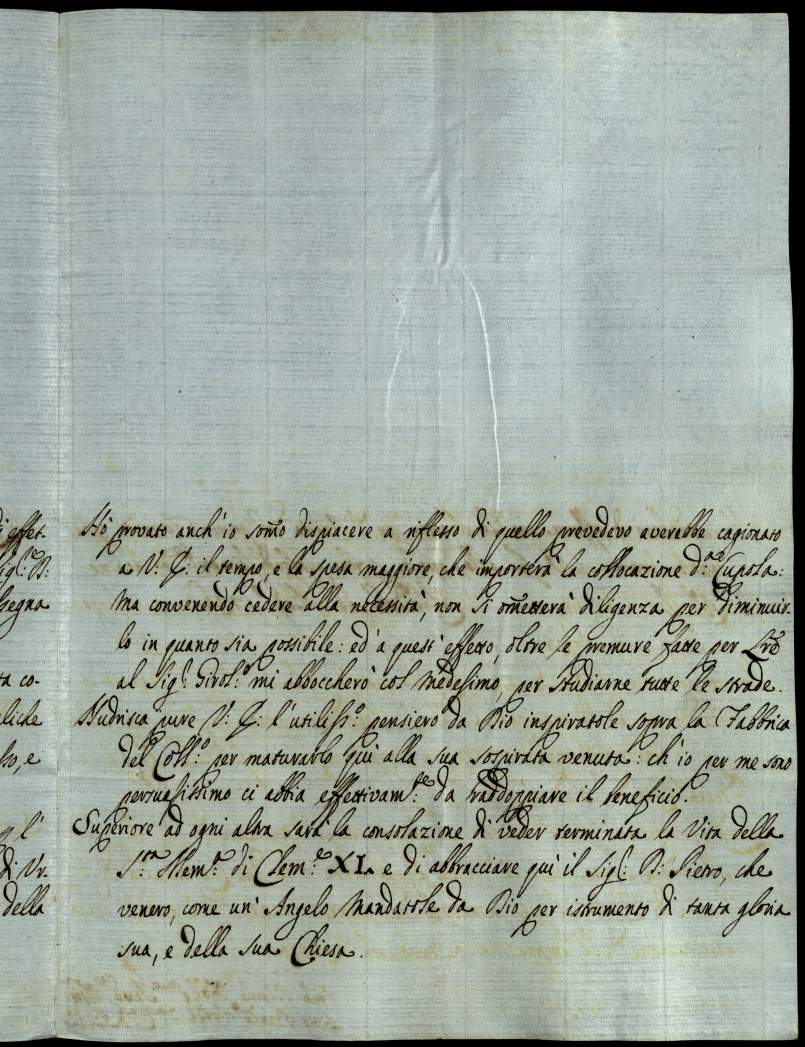 di effet-
Sigl.r B:
segna
ta co-
liche
sso, e
l'
di Vr.
della
Hò provato anch' io som̃o dispiacere a riflesso di quello prevedevo averebbe cagionato
a V: E: il tempo, e la spesa maggiore, che importerà la collocazione d.a Cupola:
ma convenendo cedere alla necessità, non si om̃etterà diligenza per diminuir-
lo in quanto sia possibile: ed' a quest' effetto, oltre le premure fatte per Lr̃e
al Sig.l Girol.o mi abboccherò col medesimo, per studiarne tutte le strade.
Nudrisca pure V: E: l'utiliss.o pensiero da Dio inspiratole sopra la Fabbrica
del Coll.o per maturarlo quì alla sua sospirata venuta: ch' io per me sono
persuasissimo ci abbia effettivam.te da raddoppiare il beneficio.
Superiore ad ogni altra sarà la consolazione di veder terminata la Vita della
S.ta Mem.a di Clem.e XI. e di abbracciare quì il Sig.l B: Pietro, che
venero, come un' Angelo mandatole da Dio per istrumento di tanta gloria
sua, e della sua Chiesa.